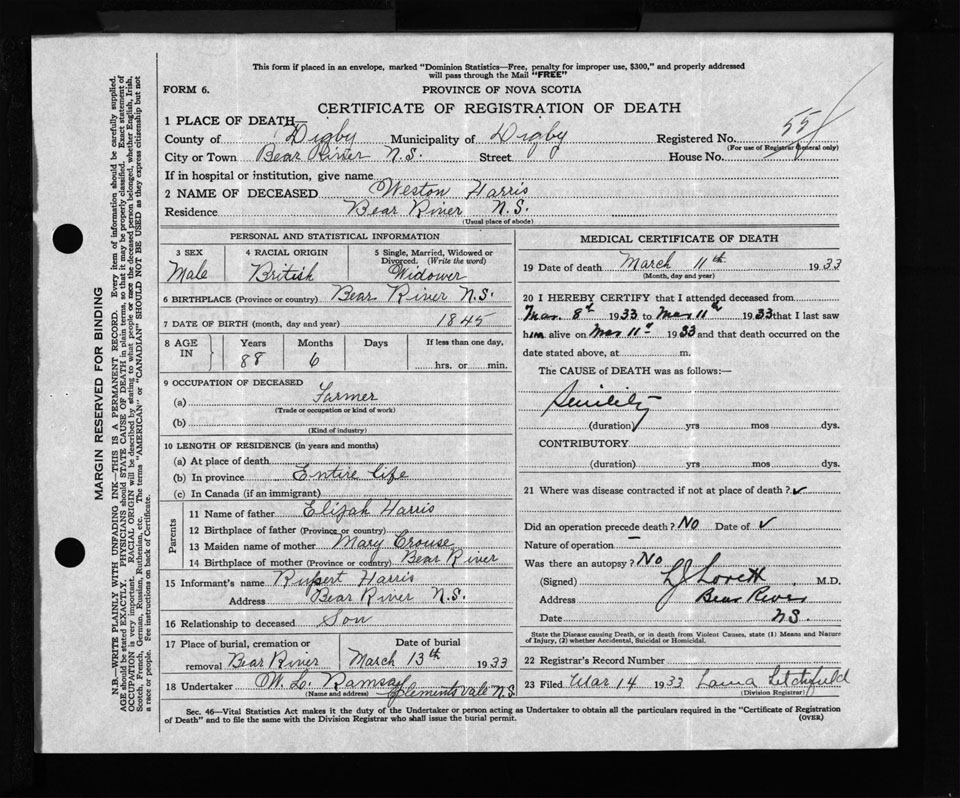 This form if placed in an envelope, marked "Dominion Statistics—Free, penalty for improper use, $300," and properly addressed
will pass through the Mail "FREE"
FORM 6.
PROVINCE OF NOVA SCOTIA
CERTIFICATE OF REGISTRATION OF DEATH
1 PLACE OF DEATH—
County of Digby Municipality of Digby Registered No. 558
(For use of Registrar General only)
City or Town Bear River N.S. Street House No.
If in hospital or institution, give name
2 NAME OF DECEASED Weston Harris
Residence Bear River N.S.
(Usual place of abode)
PERSONAL AND STATISTICAL INFORMATION
3 SEX 4 RACIAL ORIGIN 5 Single, Married, Widowed or
Divorced. (Write the word)
Male British Widower
6 BIRTHPLACE (Province or country) Bear River N.S.
7 DATE OF BIRTH (month, day and year) 1845
8 AGE IN Years Months Days If less than one day,
88 6 hrs. or min.
9 OCCUPATION OF DECEASED
(a) Farmer
(Trade or occupation or kind of work)
(b)
(Kind of industry)
10 LENGTH OF RESIDENCE (in years and months)
(a) At place of death
(b) In province Entire life
(c) In Canada (if an immigrant)
Parents
11 Name of father Elijah Harris
12 Birthplace of father (Province or country)
13 Maiden name of mother Mary Crouse
14 Birthplace of mother (Province or country) Bear River
15 Informant's name Rupert Harris
Address Bear River N.S.
16 Relationship to deceased Son
17 Place of burial, cremation or Date of burial
removal Bear River March 13th 1933
18 Undertaker W. L. Ramsay Clementsvale N.S
(Name and address)
MEDICAL CERTIFICATE OF DEATH
19 Date of death March 11th 1933
(Month, day and year)
20 I HEREBY CERTIFY that I attended deceased from
Mar. 8th 1933 to Mar 11th 1933 that I last saw
him alive on Mar 11th 1933 and that death occurred on the
date stated above, at m.
The CAUSE of DEATH was as follows:—
Senility
(duration) yrs mos dys.
CONTRIBUTORY
(duration) yrs mos dys.
21 Where was disease contracted if not at place of death? ✓
Did an operation precede death? No Date of ✓
Nature of operation —
Was there an autopsy? No
(Signed) L J Lovett M.D.
Address Bear River
Date N.S.
State the Disease causing Death, or in death from Violent Causes, state (1) Means and Nature
of Injury, (2) whether Accidental, Suicidal or Homicidal.
22 Registrar's Record Number
23 Filed Mar 14 1933 Litchfield
(Division Registrar)
Sec. 46—Vital Statistics Act makes it the duty of the Undertaker or person acting as Undertaker to obtain all the particulars required in the "Certificate of Registration
of Death" and to file the same with the Division Registrar who shall issue the burial permit.
(OVER)
MARGIN RESERVED FOR BINDING
N.B.—WRITE PLAINLY WITH UNFADING INK—THIS IS A PERMANENT RECORD. Every item of information should be carefully supplied.
AGE should be stated EXACTLY. PHYSICIANS should STATE CAUSE OF DEATH in plain terms, so that it may be properly classified. Exact statement of
OCCUPATION is very important. RACIAL ORIGIN will be described by stating to what people or race the deceased person belonged, whether English, Irish,
Scotch, French, German, Russian, Ruthenian, etc. The terms "AMERICAN" or "CANADIAN" SHOULD NOT BE USED as they express citizenship but not
a race or people. See instructions on back of Certificate.